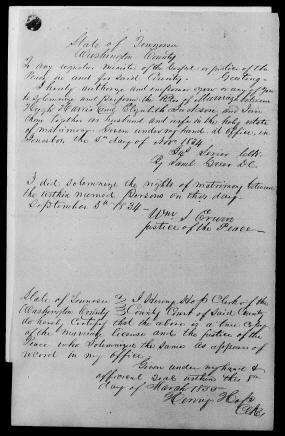 State of Tennessee
Washington County
To any regular minister of the Gospel or Justice of the
Peace in and for Said County. Greeting.
I hereby authorize and empower you or any of you
to Solemnize and perform the Rites of Marriage between
Hugh Harris and Elizabeth Jackson and Join
them together as husband and wife in the holy estate
of matrimony. Given under my hand at office, in
the 5th day of 1834
Jas Sevier Clk.
By Saml Greer D.C.
I did Solemnize the rights of matrimony between
the within named persons on this day
September 5th 1834
Wm
Justice of the Peace
State of Tennessee
Washington County
I Henry Hoss Clerk of the
County Court of Said County
do hereby Certify that the above is a true Copy
of the marriage license and the Justice of the
Peace who Solemnized the Same as appears of
record in my office
Given under my hand &
official Seal within this 8th
day of March 1855
Henry Hoss
Clk